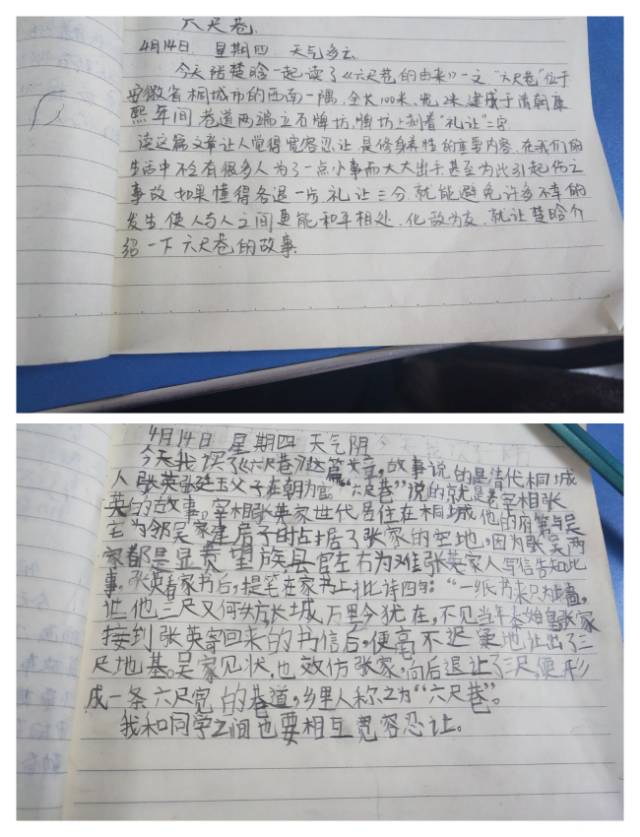 六尺巷.
4月14日 星期四 天气多云
今天陪楚晗一起读了《六尺巷的由来》一文 "六尺巷"位于
安徽省桐城市的西南一隅, 全长100米、宽2米, 建成于清朝康
熙年间, 巷道两端立石牌坊, 牌坊上刻着"礼让"二字.
读这篇文章让人觉得宽容忍让 是修身养性的重要内容, 在我们的
生活中不乏有很多人为了一点小事而大大出手 甚至为此引起伤亡
事故, 如果懂得各退一步, 礼让三分, 就能避免许多不幸的
发生, 使人与人之间更能和平相处, 化敌为友, 就让楚晗介
绍一下六尺巷的故事.
4月14日 星期四 天气阴
今天我读了《六尺巷》这篇文章,故事说的是清代桐城
人张英张廷玉父子在朝为官。"六尺巷"说的就是老宰相张
英的故事。宰相张英家世代居住在桐城他的府第与吴
宅为邻吴家建房子时占据了张家的空地,因为张吴两
家都是显贵望族县官左右为难张英家人写信告知此
事。张英看家书后,提笔在家书上批诗四句:"一纸书来只为墙,
让他三尺又何妨长城万里今犹在,不见当年秦始皇张家
接到张英寄回来的书信后,便毫不迟疑地让出了三
尺地基。吴家见状,也效仿张家,向后退让了三尺,便形
成一条六尺宽的巷道,乡里人称之为"六尺巷"。
我和同学之间也要相互宽容忍让。